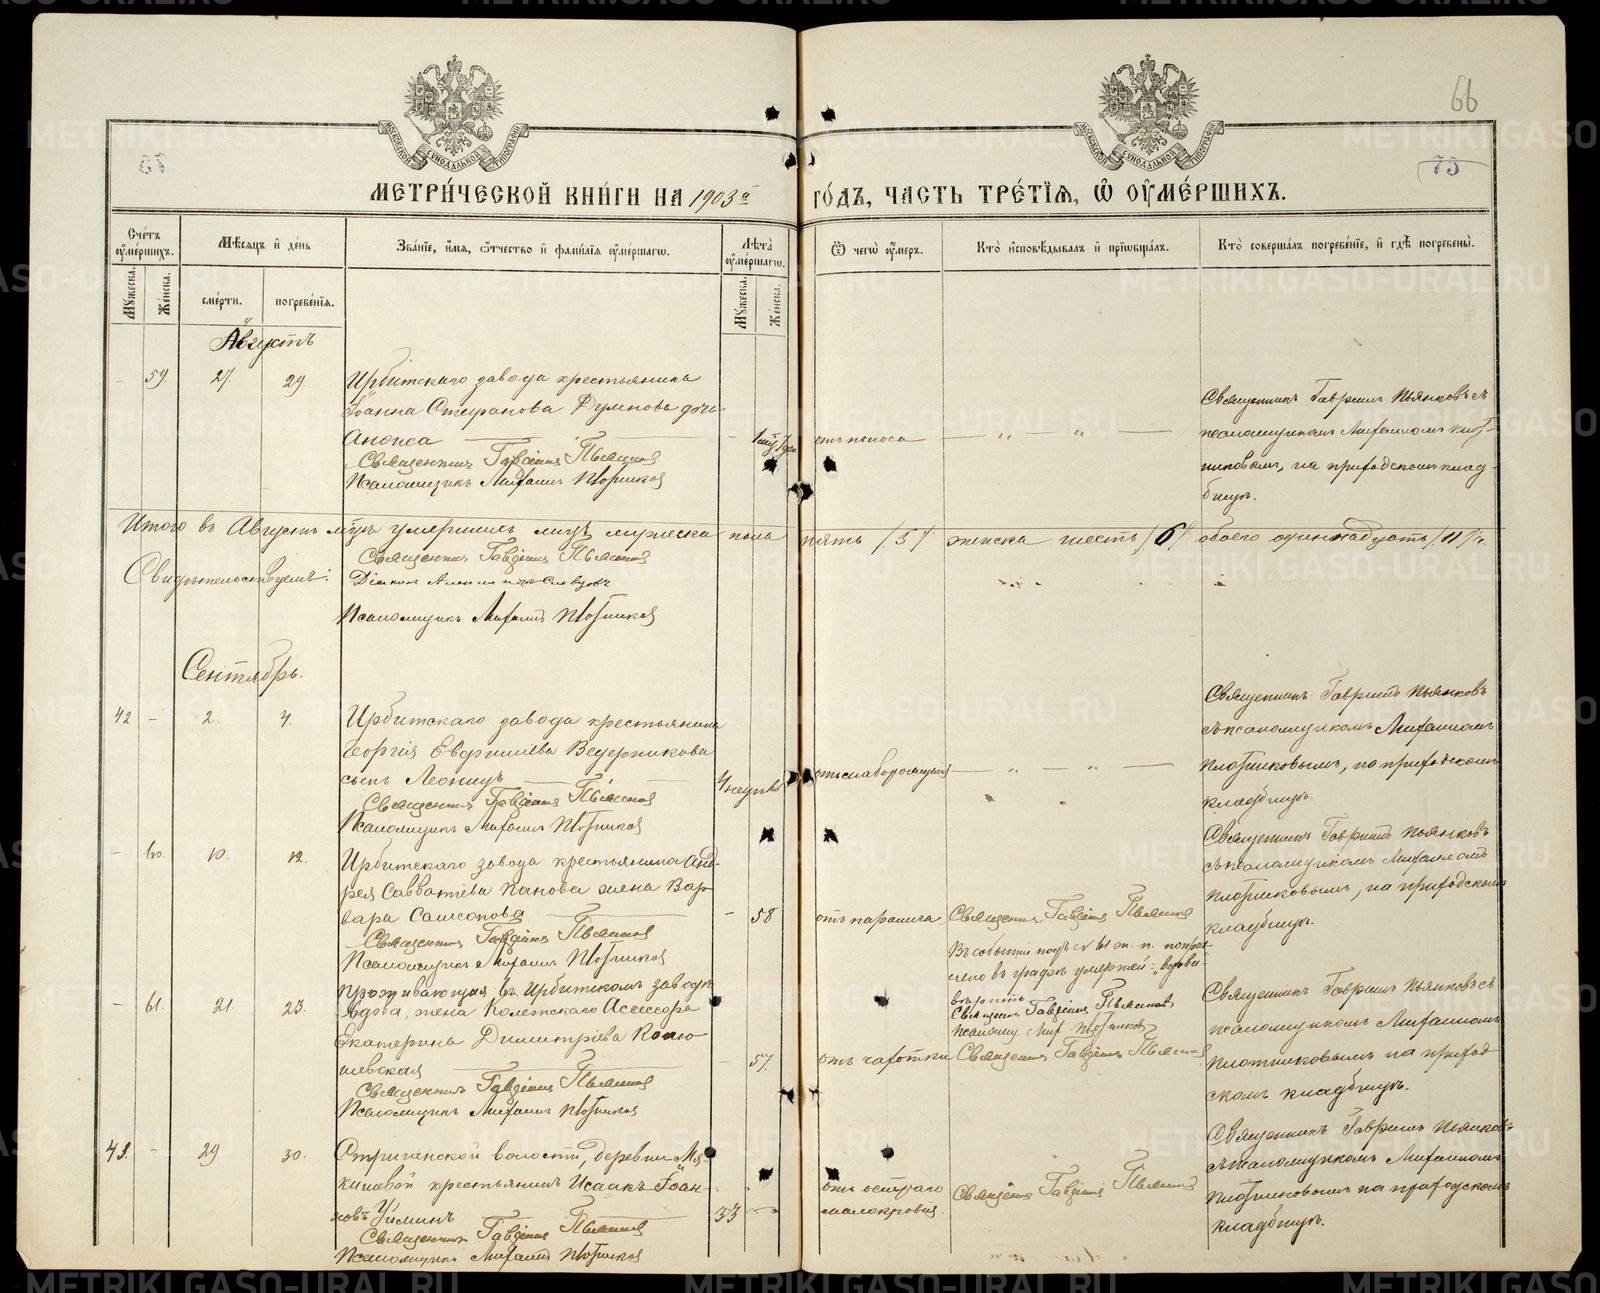 66
75
МОСКОВСКОЙ СѴНОДАЛЬНОЙ ТИПОГРАФІИ
МОСКОВСКОЙ СѴНОДАЛЬНОЙ ТИПОГРАФІИ
МЕТРИ́ЧЕСКОЙ КНИ́ГИ НА 1903й ГО́ДЪ, ЧАСТЬ ТРЕ́ТІѦ, Ѡ ОУ҆МЕ́РШИХЪ.
Сче́тъ оу҆ме́ршихъ.
Мꙋжеска.
Же́нска.
Мѣ́сѧцъ и҆ де́нь
сме́рти.
погребе́нїѧ.
Зва́нїе, и҆́мѧ, ѻ҆́тчество и҆ фами́лїѧ оу҆ме́ршагѡ.
Лѣ́та оу҆ме́ршагѡ.
Мꙋжеска.
Же́нска.
Ѿ чегѡ̀ оу҆́меръ.
Кто̀ и҆сповѣ́дывалъ и҆ прїѡбща́лъ.
Кто̀ соверша́лъ погребе́нїе, и҆ гдѣ̀ погребены̀.
Августъ
– 59. 27. 29.
Ирбитскаго завода крестьянина
Іоанна Стефанова Думнова дочь
Анфиса
Священникъ Гавріилъ Пьянков
Псаломщикъ Михаилъ Плотников
отъ поноса — „ — „ —
Священникъ Гавріилъ Пьянковъ съ
псаломщикомъ Михаиломъ Плот-
никовымъ, на приходскомъ клад-
бищѣ.
Итого въ Августѣ м҃цѣ умершихъ лицъ мужеска пола пять /5/ женска шесть /6/ обоего одиннадцать /11/
Свидѣтельствуемъ:
Священникъ Гавріилъ Пьянков
Діаконъ
Псаломщикъ Михаилъ Плотников
Сентябрь.
42 – 2. 4.
Ирбитскаго завода крестьянина
Георгія Евфиміева Ведерникова
сынъ Леонидъ
Священникъ Гавріилъ Пьянков
Псаломщикъ Михаилъ Плотников
4 недѣль
отъ слабости — „ — „ —
Священникъ Гавріилъ Пьянковъ
съ псаломщикомъ Михаиломъ
Плотниковымъ, на приходскомъ
кладбищѣ.
– 60. 10. 12.
Ирбитскаго завода крестьянина Анд-
рея Савватіева Панова жена Вар-
вара Самсонова
Священникъ Гавріилъ Пьянков
Псаломщикъ Михаилъ Плотников
– 58
отъ паралича
Священникъ Гавріилъ Пьянков
Священникъ Гавріилъ Пьянковъ
съ псаломщикомъ Михаиломъ
Плотниковымъ, на приходскомъ
кладбищѣ.
Въ событіи подъ № 61 ж. п. поправ-
лено въ графѣ умершей: „вдова“
вѣрить
Священникъ Гавріилъ Пьянков
Псаломщ. Мих. Плотников
– 61. 21. 23.
Проживающая въ Ирбитскомъ заводѣ
вдова, жена Колежскаго Асессора
Екатерина Димитріева
шевская
Священникъ Гавріилъ Пьянков
Псаломщикъ Михаилъ Плотников
– 57.
отъ чахотки
Священникъ Гавріилъ Пьянков
Священникъ Гавріилъ Пьянковъ съ
псаломщикомъ Михаиломъ
Плотниковымъ на приход-
скомъ кладбищѣ.
43. – 29 30.
Стриганской волости, деревни Мя-
кишевой крестьянинъ Исаакъ Іоан-
новъ Уйминъ
Священникъ Гавріилъ Пьянков
Псаломщикъ Михаилъ Плотников
33 –
отъ остраго
малокровія
Священникъ Гавріилъ Пьянков
Священникъ Гавріилъ Пьянковъ
съ псаломщикомъ Михаиломъ
Плотниковымъ на приходскомъ
кладбищѣ.
METRIKI.GASO-URAL.RU